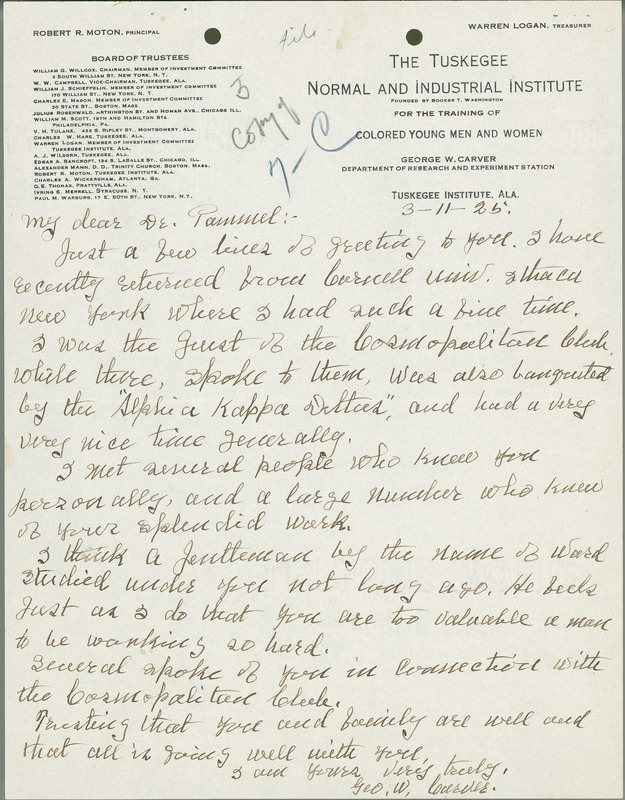 ROBERT R. MOTON, PRINCIPAL
WARREN LOGAN, TREASURER
BOARD OF TRUSTEES
WILLIAM G. WILLCOX, CHAIRMAN, MEMBER OF INVESTMENT COMMITTEE
3 SOUTH WILLIAM ST. NEW YORK, N. Y.
W. W. CAMPBELL, VICE-CHAIRMAN, TUSKEGEE, ALA.
WILLIAM J. SCHIEFFELIN, MEMBER OF INVESTMENT COMMITTEE
170 WILLIAM ST., NEW YORK, N. Y.
CHARLES E. MASON, MEMBER OF INVESTMENT COMMITTEE
30 STATE ST., BOSTON, MASS.
JULIUS ROSENWALD, ARTHINGTON ST. AND HOMAN AVE., CHICAGO ILL.
WILLIAM M. SCOTT, 19TH AND HAMILTON STS.
PHILADELPHIA, PA.
V. H. TULANE, 455 S. RIPLEY ST., MONTGOMERY, ALA.
CHARLES W. HARE, TUSKEGEE, ALA.
WARREN LOGAN, MEMBER OF INVESTMENT COMMITTEE
TUSKEGEE INSTITUTE, ALA.
A. J. WILBORN, TUSKEGEE, ALA.
EDGAR A. BANCROFT, 184 S. LASALLE ST., CHICAGO, ILL.
ALEXANDER MANN, D. D., TRINITY CHURCH, BOSTON, MASS.
ROBERT R. MOTON, TUSKEGEE INSTITUTE, ALA.
CHARLES A. WICKERSHAM, ATLANTA, GA.
G. E. THOMAS, PRATTVILLE, ALA.
IVRING S. MERRELL, SYRACUSE, N. Y.
PAUL M. WARBURG, 17 E. 80TH ST., NEW YORK, N. Y.
file
3
Copy
7-0
THE TUSKEGEE
NORMAL AND INDUSTRIAL INSTITUTE
FOUNDED BY BOOKER T. WASHINGTON
FOR THE TRAINING OF
COLORED YOUNG MEN AND WOMEN
GEORGE W. CARVER
DEPARTMENT OF RESEARCH AND EXPERIMENT STATION
TUSKEGEE INSTITUTE, ALA.
3-11-25.
My dear Dr. Pammel:-
Just a few lines of greeting to you. I have
recently returned from Cornell Univ. Ithaca
New York where I had such a fine time.
I was the guest of the Cosmopolitan Club
while there, spoke to them, was also banqueted
by the "Alphia Kappa Deltas", and had a very
very nice time generally.
I met several people who knew you
personally, and a large number who knew
of your splendid work.
I think a gentleman by the name of Ward
studied under you not long ago. He feels
just as I do that you are too valuable a man
to be working so hard.
Several spoke of you in connection with
the Cosmopolitan Club.
Trusting that you and family are well and
that all is going well with you,
I am yours very truly,
Geo. W. Carver.